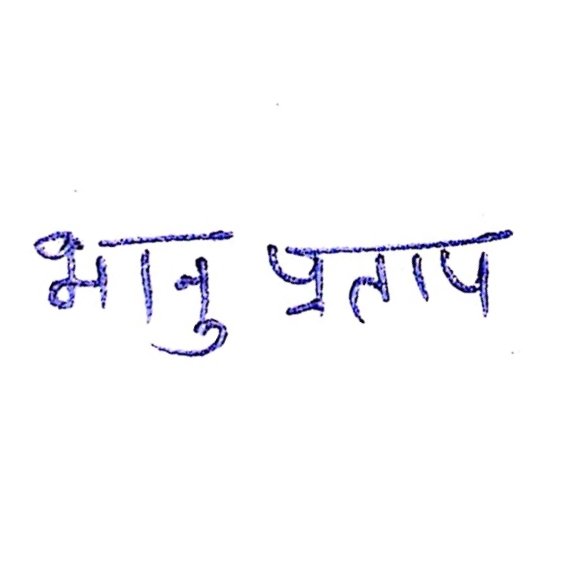 भानु प्रताप